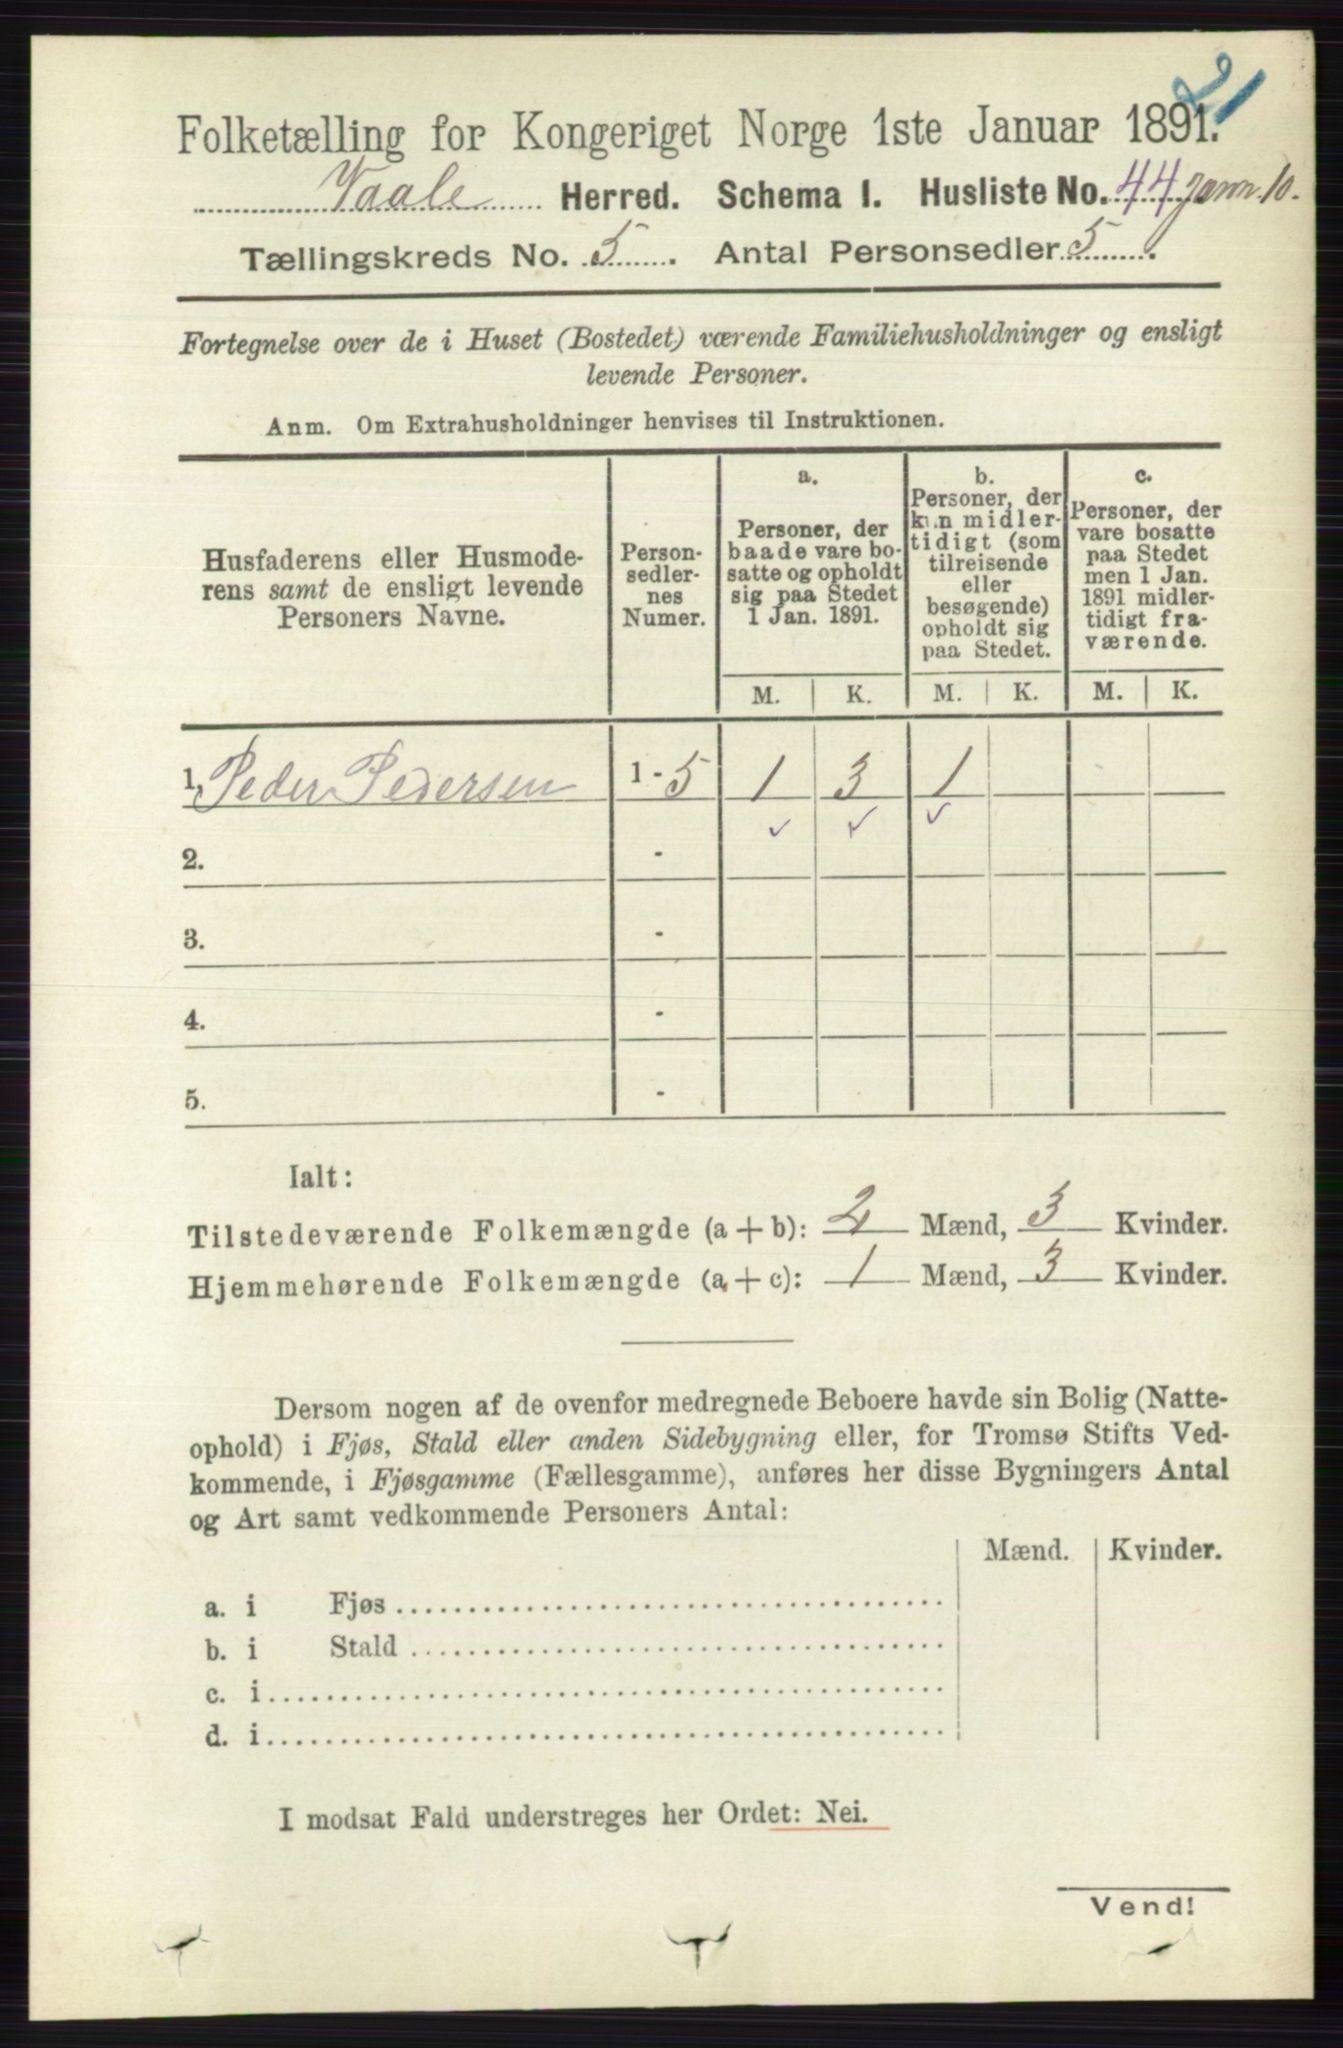 21
Folketælling for Kongeriget Norge 1ste Januar 1891.
Vaale Herred. Schema I. Husliste No. 44
Tællingskreds No. 5. Antal Personsedler 5.
Fortegnelse over de i Huset (Bostedet) værende Familiehusholdninger og ensligt
levende Personer.
Anm. Om Extrahusholdninger henvises til Instruktionen.
Husfaderens eller Husmode-
rens samt de ensligt levende
Personers Navne.
Person-
sedler-
nes
Numer.
a.
Personer, der
baade vare bo-
satte og opholdt
sig paa Stedet
1 Jan. 1891.
b.
Personer, der
kun midler-
tidigt (som
tilreisende
eller
besøgende)
opholdt sig
paa Stedet.
c.
Personer, der
vare bosatte
paa Stedet
men 1 Jan.
1891 midler-
tidigt fra-
værende.
M. K. M. K. M. K.
1. Peder Pedersen 1 - 5 1 3 1
✓ ✓ ✓
2. -
3. -
4. -
5. -
Ialt:
Tilstedeværende Folkemængde (a + b): 2 Mænd, 3 Kvinder.
Hjemmehørende Folkemængde (a + c): 1 Mænd, 3 Kvinder.
Dersom nogen af de ovenfor medregnede Beboere havde sin Bolig (Natte-
ophold) i Fjøs, Stald eller anden Sidebygning eller, for Tromsø Stifts Ved-
kommende, i Fjøsgamme (Fællesgamme), anføres her disse Bygningers Antal
og Art samt vedkommende Personers Antal:
Mænd. Kvinder.
a. i Fjøs
b. i Stald
c. i
d. i
I modsat Fald understreges her Ordet: Nei.
Vend!